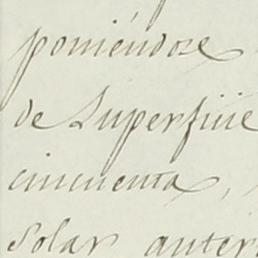 poniéndose
de Superficie
cincuenta,
Solar anter